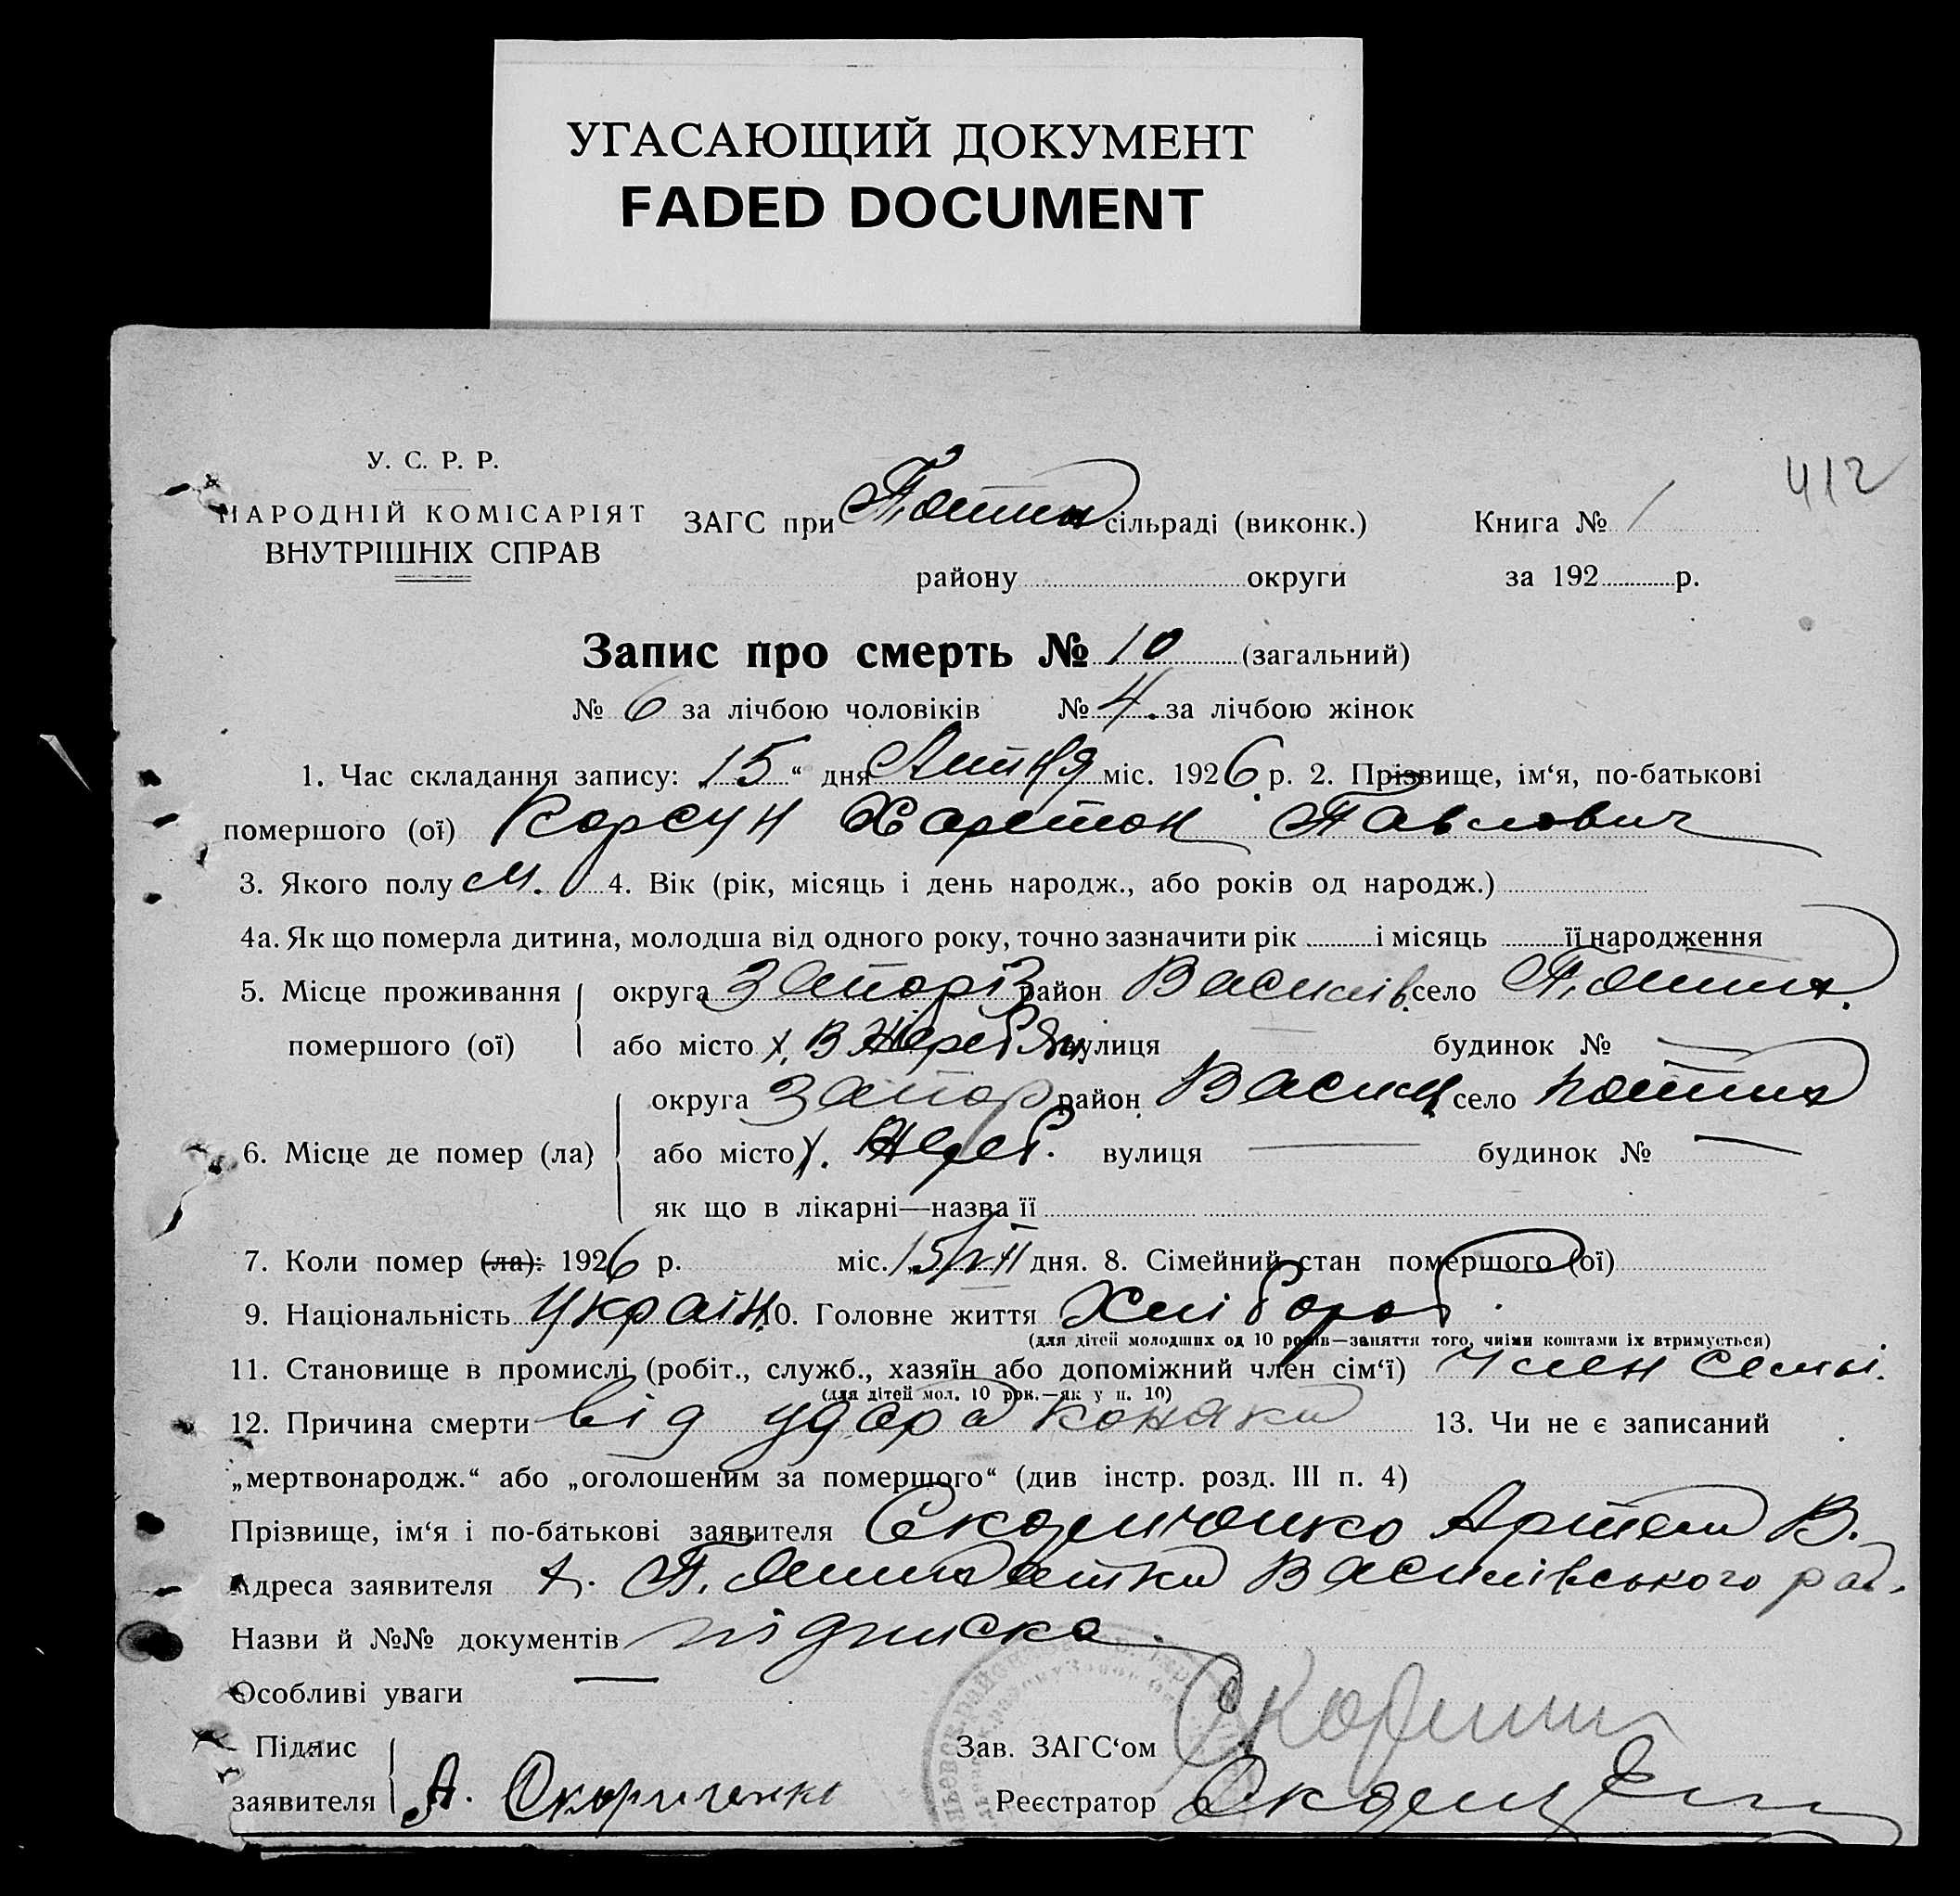 УГАСАЮЩИЙ ДОКУМЕНТ
FADED DOCUMENT
412
У. С. Р. Р.
НАРОДНІЙ КОМІСАРІЯТ
ВНУТРІШНІХ СПРАВ
ЗАГС при сільраді (виконк.)
Книга № 1
району округи
за 192 р.
Запис про смерть № 10 (загальний)
№ 6 за лічбою чоловіків № 4. за лічбою жінок
1. Час складання запису: „15“ дня міс. 1926 р. 2. Прізвище, ім‘я, по-батькові
помершого (ої) Корсун Харетон Павлович
3. Якого полу М. 4. Вік (рік, місяць і день народж., або років од народж.)
4а. Як що померла дитина, молодша від одного року, точно зазначити рік і місяць її народження
5. Місце проживання округа Запоріз район Василів. село
помершого (ої) або місто х. В Жереб'ян вулиця будинок № —
округа Запор район село
6. Місце де помер (ла) або місто х. Жереб. вулиця — будинок № —
як що в лікарні—назва її
7. Коли помер (ла): 1926 р. міс. дня. 8. Сімейний стан помершого (ої)
9. Національність Україн. 10. Головне життя Хлібороб.
(для дітей молодших од 10 років—заняття того, чиїми коштами їх втримується)
11. Становище в промислі (робіт., служб., хазяїн або допоміжний член сім‘ї) Член семьї.
(для дітей мол. 10 рок.—як у п. 10)
12. Причина смерти від удара коняки 13. Чи не є записаний
„мертвонародж.“ або „оголошеним за помершого“ (див інстр. розд. III п. 4)
Прізвище, ім‘я і по-батькові заявителя Скориченко Артем В.
Адреса заявителя Василівського рай.
Назви й №№ документів підписка.
Особливі уваги —
Підпис
Зав. ЗАГС‘ом
заявителя А. Скориченко
Реєстратор